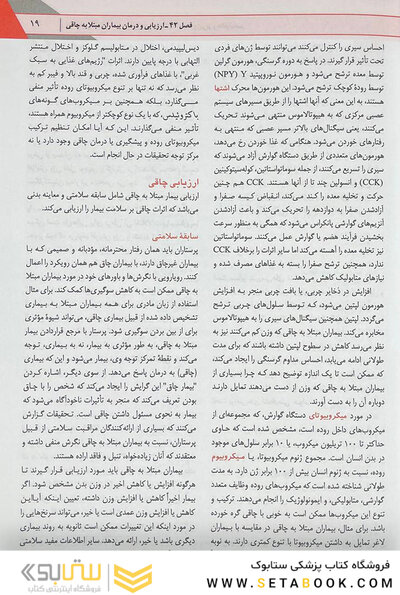 فصل ۴۲ ـ ارزیابی و درمان بیماران مبتلا به چاقی
۱۹
احساس سیری را کنترل می‌کنند می‌توانند توسط ژن‌های فردی
تحت تأثیر قرار گیرند. در پاسخ به دوره گرسنگی، هورمون گرلین
توسط معده ترشح می‌شود و هورمون نوروپپتید Y (NPY)
توسط رودۀ کوچک ترشح می‌شود. این هورمون‌ها محرک اشتها
هستند، به این معنی که آنها اشتها را از طریق مسیرهای سیستم
عصبی مرکزی که به هیپوتالاموس منتهی می‌شوند تحریک
می‌کنند، یعنی سیگنال‌های بالاتر مسیر عصبی که منتهی به
رفتارهای خوردن می‌شود. هنگامی که غذا خوردن رخ می‌دهد،
هورمون‌های متعددی از طریق دستگاه گوارش آزاد می‌شوند که
سیری را تسریع می‌کنند، از جمله سوماتواستاتین، کوله‌سیتوکینین
(CCK) و انسولین چند تا از آنها هستند. CCK هم چنین
حرکت و تخلیه معده را کند می‌کند، انقباض کیسه صفرا و
آزادشدن صفرا به دوازدهه را تحریک می‌کند و باعث آزادشدن
آنزیم‌های گوارشی پانکراس می‌شود که همگی به منظور سرعت
بخشیدن فرآیند هضم یا گوارش عمل می‌کنند. سوماتواستاتین
نیز تخلیه معده را آهسته می‌کند اما سایر اثرات را برخلاف CCK
ندارد، همچنین صفرا را بسته به غذاهای مصرف شده و
نیازهای متابولیک کاهش می‌دهد.
افزایش در ذخایر چربی، یا بافت چربی منجر به افزایش
هورمون لپتین می‌شود، که توسط سلول‌های چربی ترشح
می‌گردد. لپتین همچنین سیگنال‌های سیری را به هیپوتالاموس
مخابره می‌کند. بیماران مبتلا به چاقی که وزن کم می‌کنند نیز به
نظر می‌رسد کاهش در سطوح لپتین داشته باشند که برای مدت
طولانی ادامه می‌یابد، احساس مداوم گرسنگی را ایجاد می‌کند،
که ممکن است تا یک اندازه توضیح دهد که چرا بسیاری از
بیماران مبتلا به چاقی که وزن از دست می‌دهند تمایل دارند
دوباره آن را به دست آورند.
در مورد میکروبیوتای دستگاه گوارش، که مجموعه‌ای از
میکروب‌های داخل روده است، مشخص شده است که حاوی
حداکثر تا ۱۰۰ تریلیون میکروب، یا ۱۰ برابر سلول‌های موجود
در بدن انسان است. مجموع ژنوم میکروبیوتا، یا میکروبیوم
روده، نسبت به ژنوم انسان بیش از ۱۰۰ برابر ژن دارد. به مدت
طولانی شناخته شده است که میکروب‌های روده وظایف متعدد
گوارشی، متابولیکی، و ایمونولوژیک را انجام می‌دهند. ترکیب و
تنوع این میکروب‌ها ممکن است به خوبی با چاقی گره خورده
باشد. برای مثال، بیماران مبتلا به چاقی در مقایسه با بیماران
لاغر تمایل به داشتن میکروبیوتا با تنوع کمتری دارند. به نوبه
دیس‌لیپیدمی، اختلال در متابولیسم گلوکز و اختلال منتشر
التهابی با درجه پایین دارند. اثرات "رژیم‌های غذایی به سبک
غربی"، با غذاهای فرآوری شده، چربی و قند بالا و فیبر کم به
نظر می‌رسد که نه تنها بر تنوع میکروبیوتای روده تأثیر منفی
می‌گذارد، بلکه همچنین بر میکروب‌های گونه‌های
باکتروئیدس، که با یک نوع کوچکتر از میکروبیوم همراه هستند،
تأثیر منفی می‌گذارند. این که آیا امکان تنظیم ترکیب
میکروبیوتای روده و پیشگیری یا درمان چاقی وجود دارد یا نه
مرکز توجه تحقیقات در حال انجام است.
ارزیابی چاقی
ارزیابی بیمار مبتلا به چاقی شامل سابقه سلامتی و معاینه بدنی
می‌باشد که اثرات چاقی بر سلامت بیمار را ارزیابی می‌کند.
سابقه سلامتی
پرستاران باید همان رفتار محترمانه، مؤدبانه و صمیمی که با
بیماران غیرچاق دارند، با بیماران چاق هم همان رویکرد را اعمال
کنند. رویارویی با نگرش‌ها و باورهای خود در مورد بیماران مبتلا
به چاقی ممکن است به کاهش سوگیری‌ها کمک کند. برای مثال
استفاده از زبان مادری برای همه بیماران مبتلا به بیماری
تشخیص داده شده از قبیل بیماری چاقی، می‌تواند شیوۀ مؤثری
برای از بین بردن سوگیری شود. پرستار با مرجع قراردادن بیمار
مبتلا به چاقی، به طور مؤثری به بیمار، نه به بیماری، توجه
می‌کند و نقطۀ تمرکز توجه وی، بیمار می‌شود و این که بیماری
(چاقی) به درمان پاسخ می‌دهد. از سوی دیگر، اشاره کردن
"بیمار چاق" این گرایش را ایجاد می‌کند که شخص را با چاق
بودن تعریف می‌کند که منجر به تأثیرات ناخودآگاه می‌شود که
بیمار به نحوی مسئول داشتن چاقی است. تحقیقات گزارش
می‌کنند که بسیاری از ارائه‌کنندگان مراقبت سلامتی از قبیل
پرستاران، نسبت به بیماران مبتلا به چاقی نگرش منفی داشته و
معتقدند که آنان زیاده‌خواه، تنبل و فاقد اراده هستند.
بیماران مبتلا به چاقی باید مورد ارزیابی قرار گیرند تا
هرگونه افزایش یا کاهش اخیر در وزن بدن مشخص شود. اگر
بیمار اخیراً کاهش یا افزایش وزن داشته، تعیین اینکه آیا این
کاهش یا افزایش وزن عمدی است یا خیر، می‌تواند سرنخ‌هایی را
در مورد اینکه این تغییرات ممکن است ثانویه به روند بیماری
دیگری باشد یا خیر، ارائه می‌دهد. سایر اطلاعات مفید سلامتی
فروشگاه کتاب پزشکی ستابوک
WWW.SETABOOK.COM
ستابوک
فروشگاه اینترنتی کتاب